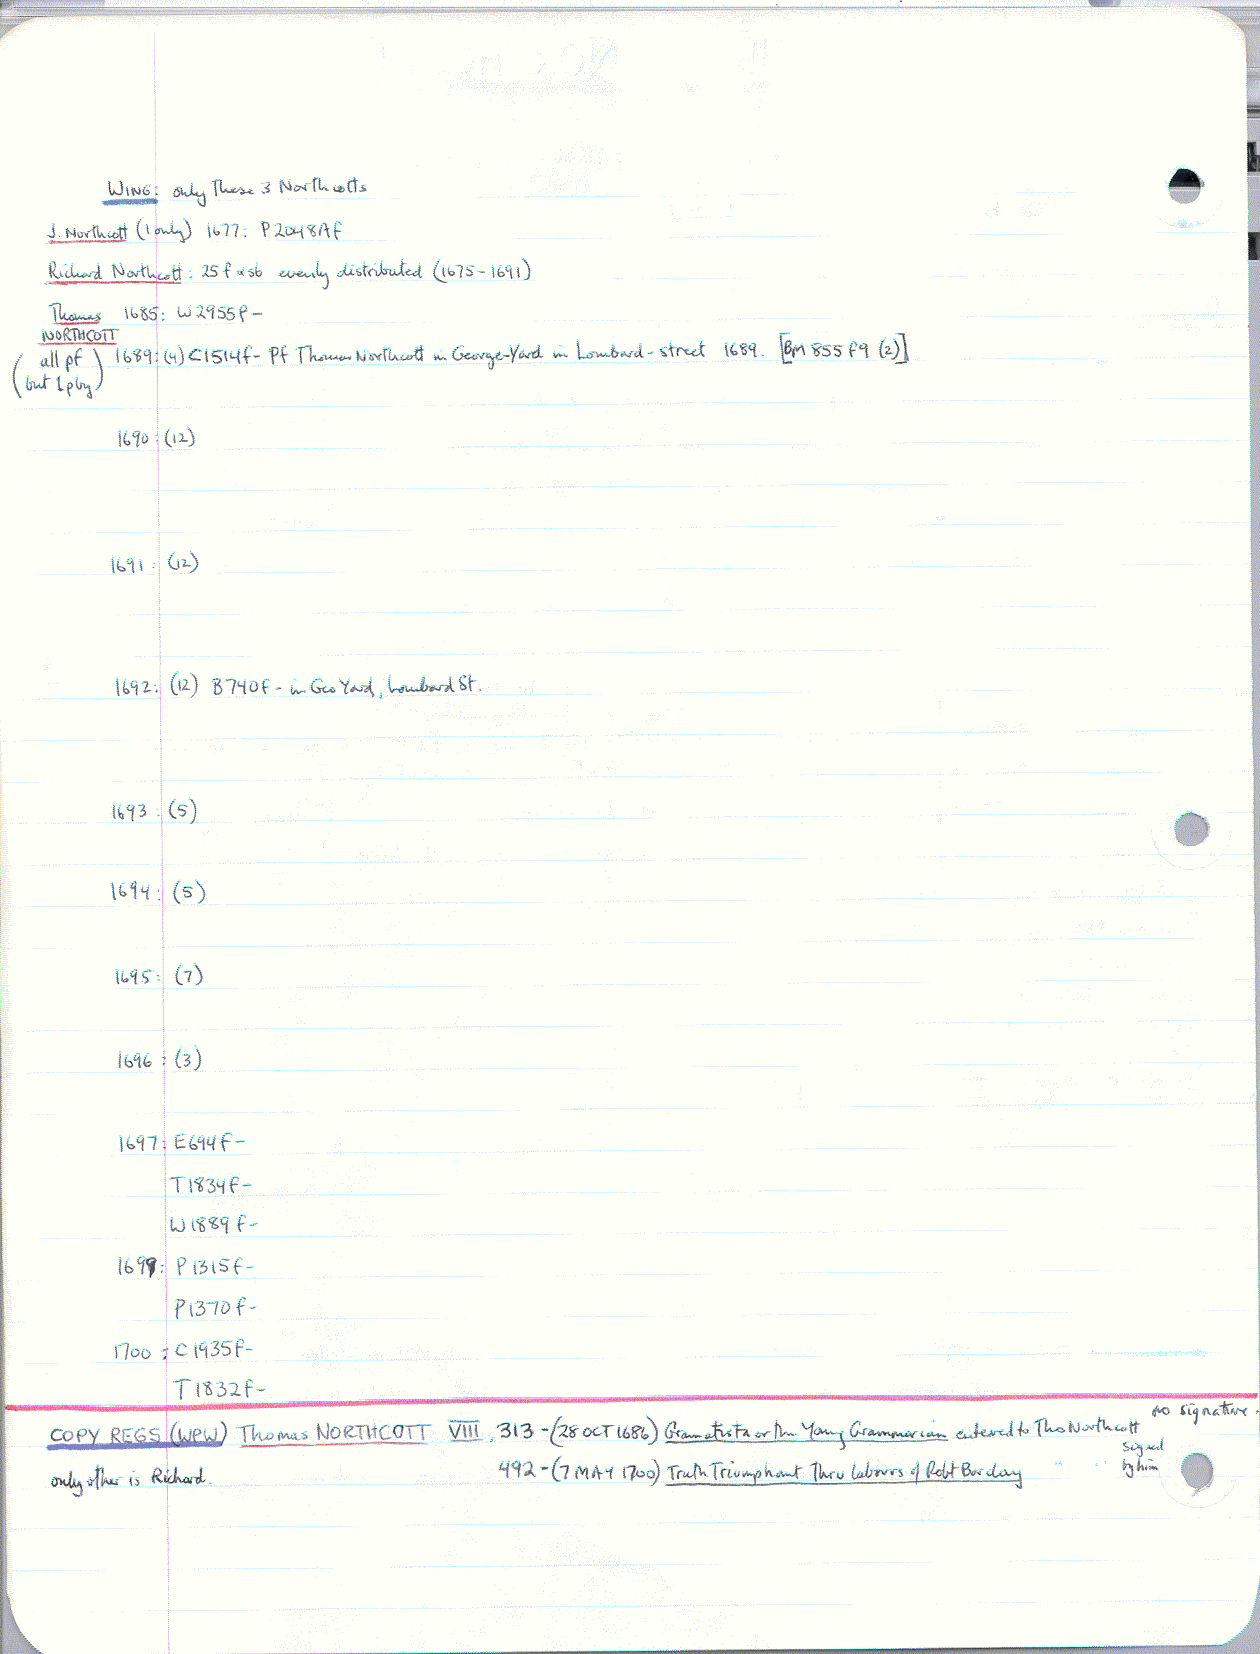 WING: only These 3 Northcotts
J. Northcott (1 only) 1677: P2048Af
Richard Northcott: 25 f & sb evenly distributed (1675-1691)
Thomas 1685: W2955f-
NORTHCOTT
(all pf but 1 pby) 1689: (4) C1514f- Pf Thomas Northcott in George-Yard in Lombard-street 1689. [BM 855 f9 (2)]
1690: (12)
1691: (12)
1692: (12) B740f- in Geo Yard, Lombard St.
1693: (5)
1694: (5)
1695: (7)
1696: (3)
1697: E694f-
T1834f-
W1889f-
1699: P1315f-
P1370f-
1700: C1935f-
T1832f-
COPY REGS (WPW) Thomas NORTHCOTT VIII, 313-(28 OCT 1686) Gramatista or the Young Grammarian entered to Tho Northcott no signature.
only other is Richard. 492-(7 MAY 1700) Truth Triumphant Thru Labours of Robt Barclay " " " signed by him